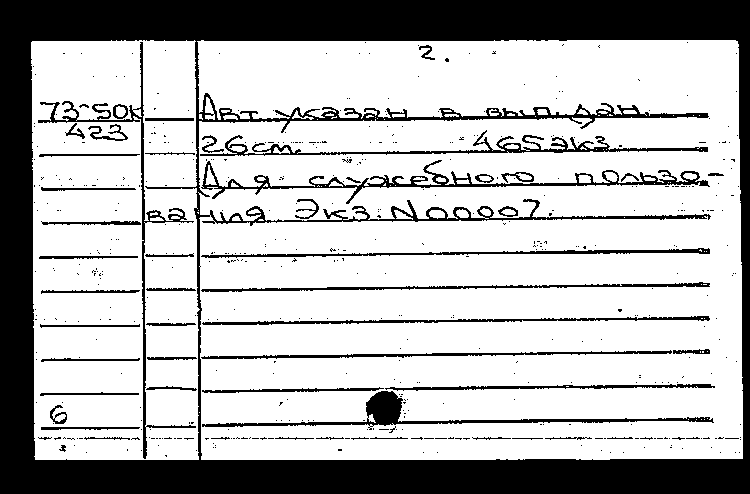 2.
73-50к Авт указан в вып. дан.
423 26см. 465экз.
Для служебного пользо-
вания Экз. N00007.
6